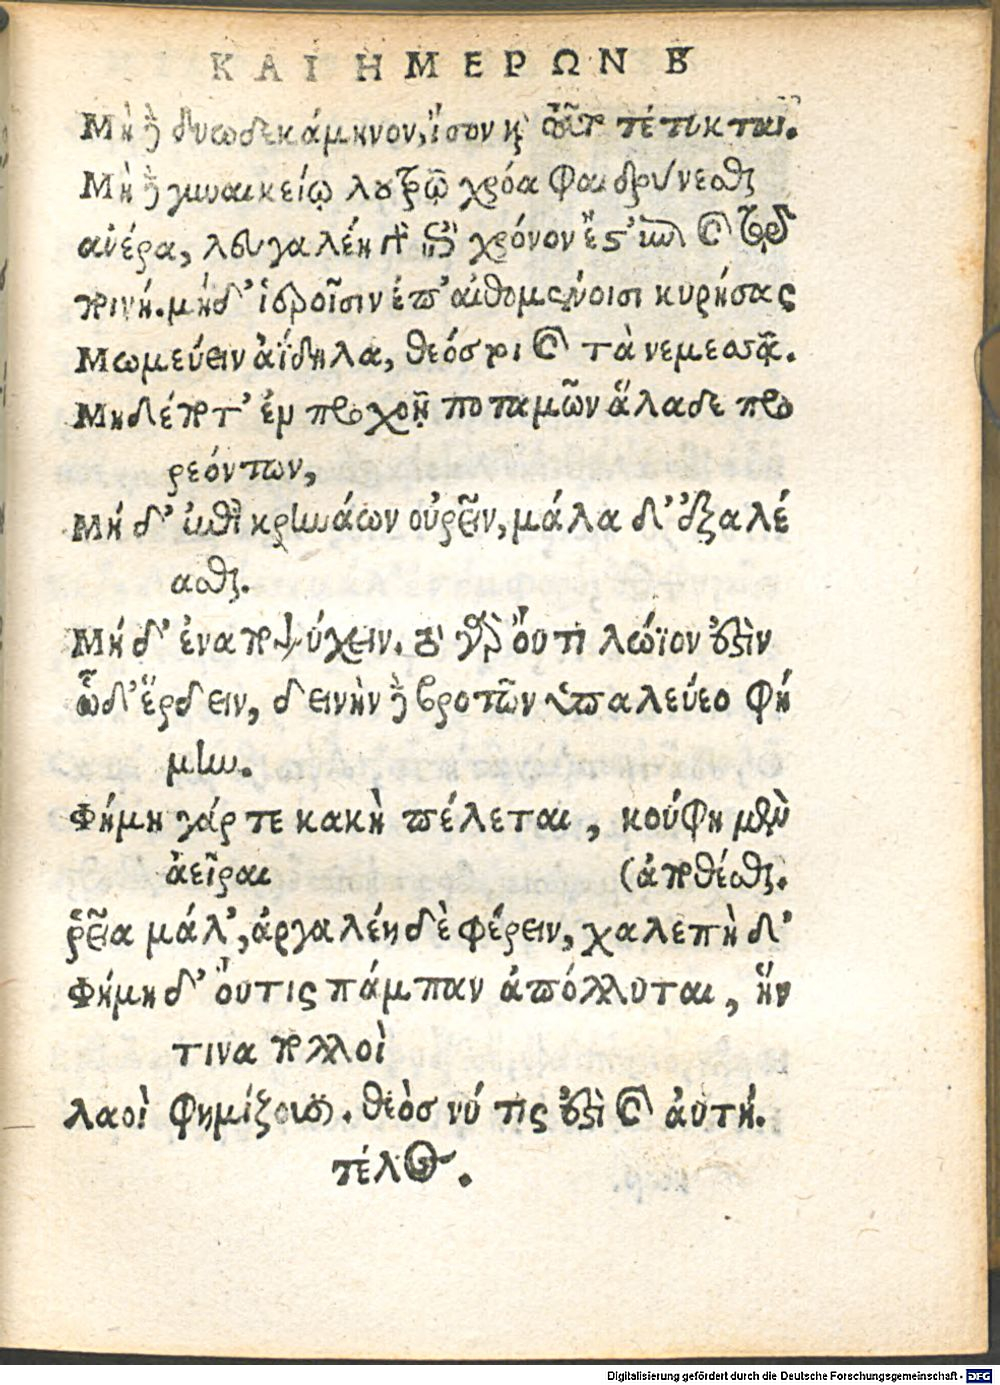 ΚΑΙ ΗΜΕΡΩΝ Β
Μὴ δὲ δυωδεκάμηνον, ἴσον καὶ τοῦτο τέτυκται.
Μὴ δὲ γυναικείῳ λουτρῷ χρόα φαιδρύνεσθαι
ἀνέρα, λευγαλέη γὰρ ἐπὶ χρόνον ἔστ' ἐπὶ καὶ τῷ δὲ
ποινή. μήδ' ἱεροῖσιν ἐπ' αἰθομένοισι κυρήσας
Μωμεύειν ἀΐδηλα, θεός τοι καὶ τὰ νεμεσσᾷ.
Μηδέποτ' ἐν προχοῇ ποταμῶν ἅλαδε προ
ρεόντων,
Μήδ' ἐπὶ κρηνάων οὐρεῖν, μάλα δ' ἐξαλέ
ασθαι.
Μήδ' ἐναποψύχειν. τὸ γὰρ οὔτι λώϊον ἐστὶν
ὧδ' ἕρδειν, δεινὴν δὲ βροτῶν ὑπαλεύεο φή
μην.
Φήμη γάρ τε κακὴ πέλεται, κούφη μὲν
ἀεῖραι (ἀποθέσθαι.
ῥεῖα μάλ', ἀργαλέη δὲ φέρειν, χαλεπὴ δ'
Φήμη δ' οὔτις πάμπαν ἀπόλλυται, ἥν
τινα πολλοὶ
λαοὶ φημίζουσι. θεὸς νύ τις ἐστὶ καὶ αὐτή.
τέλος.
Digitalisierung gefördert durch die Deutsche Forschungsgemeinschaft - DFG